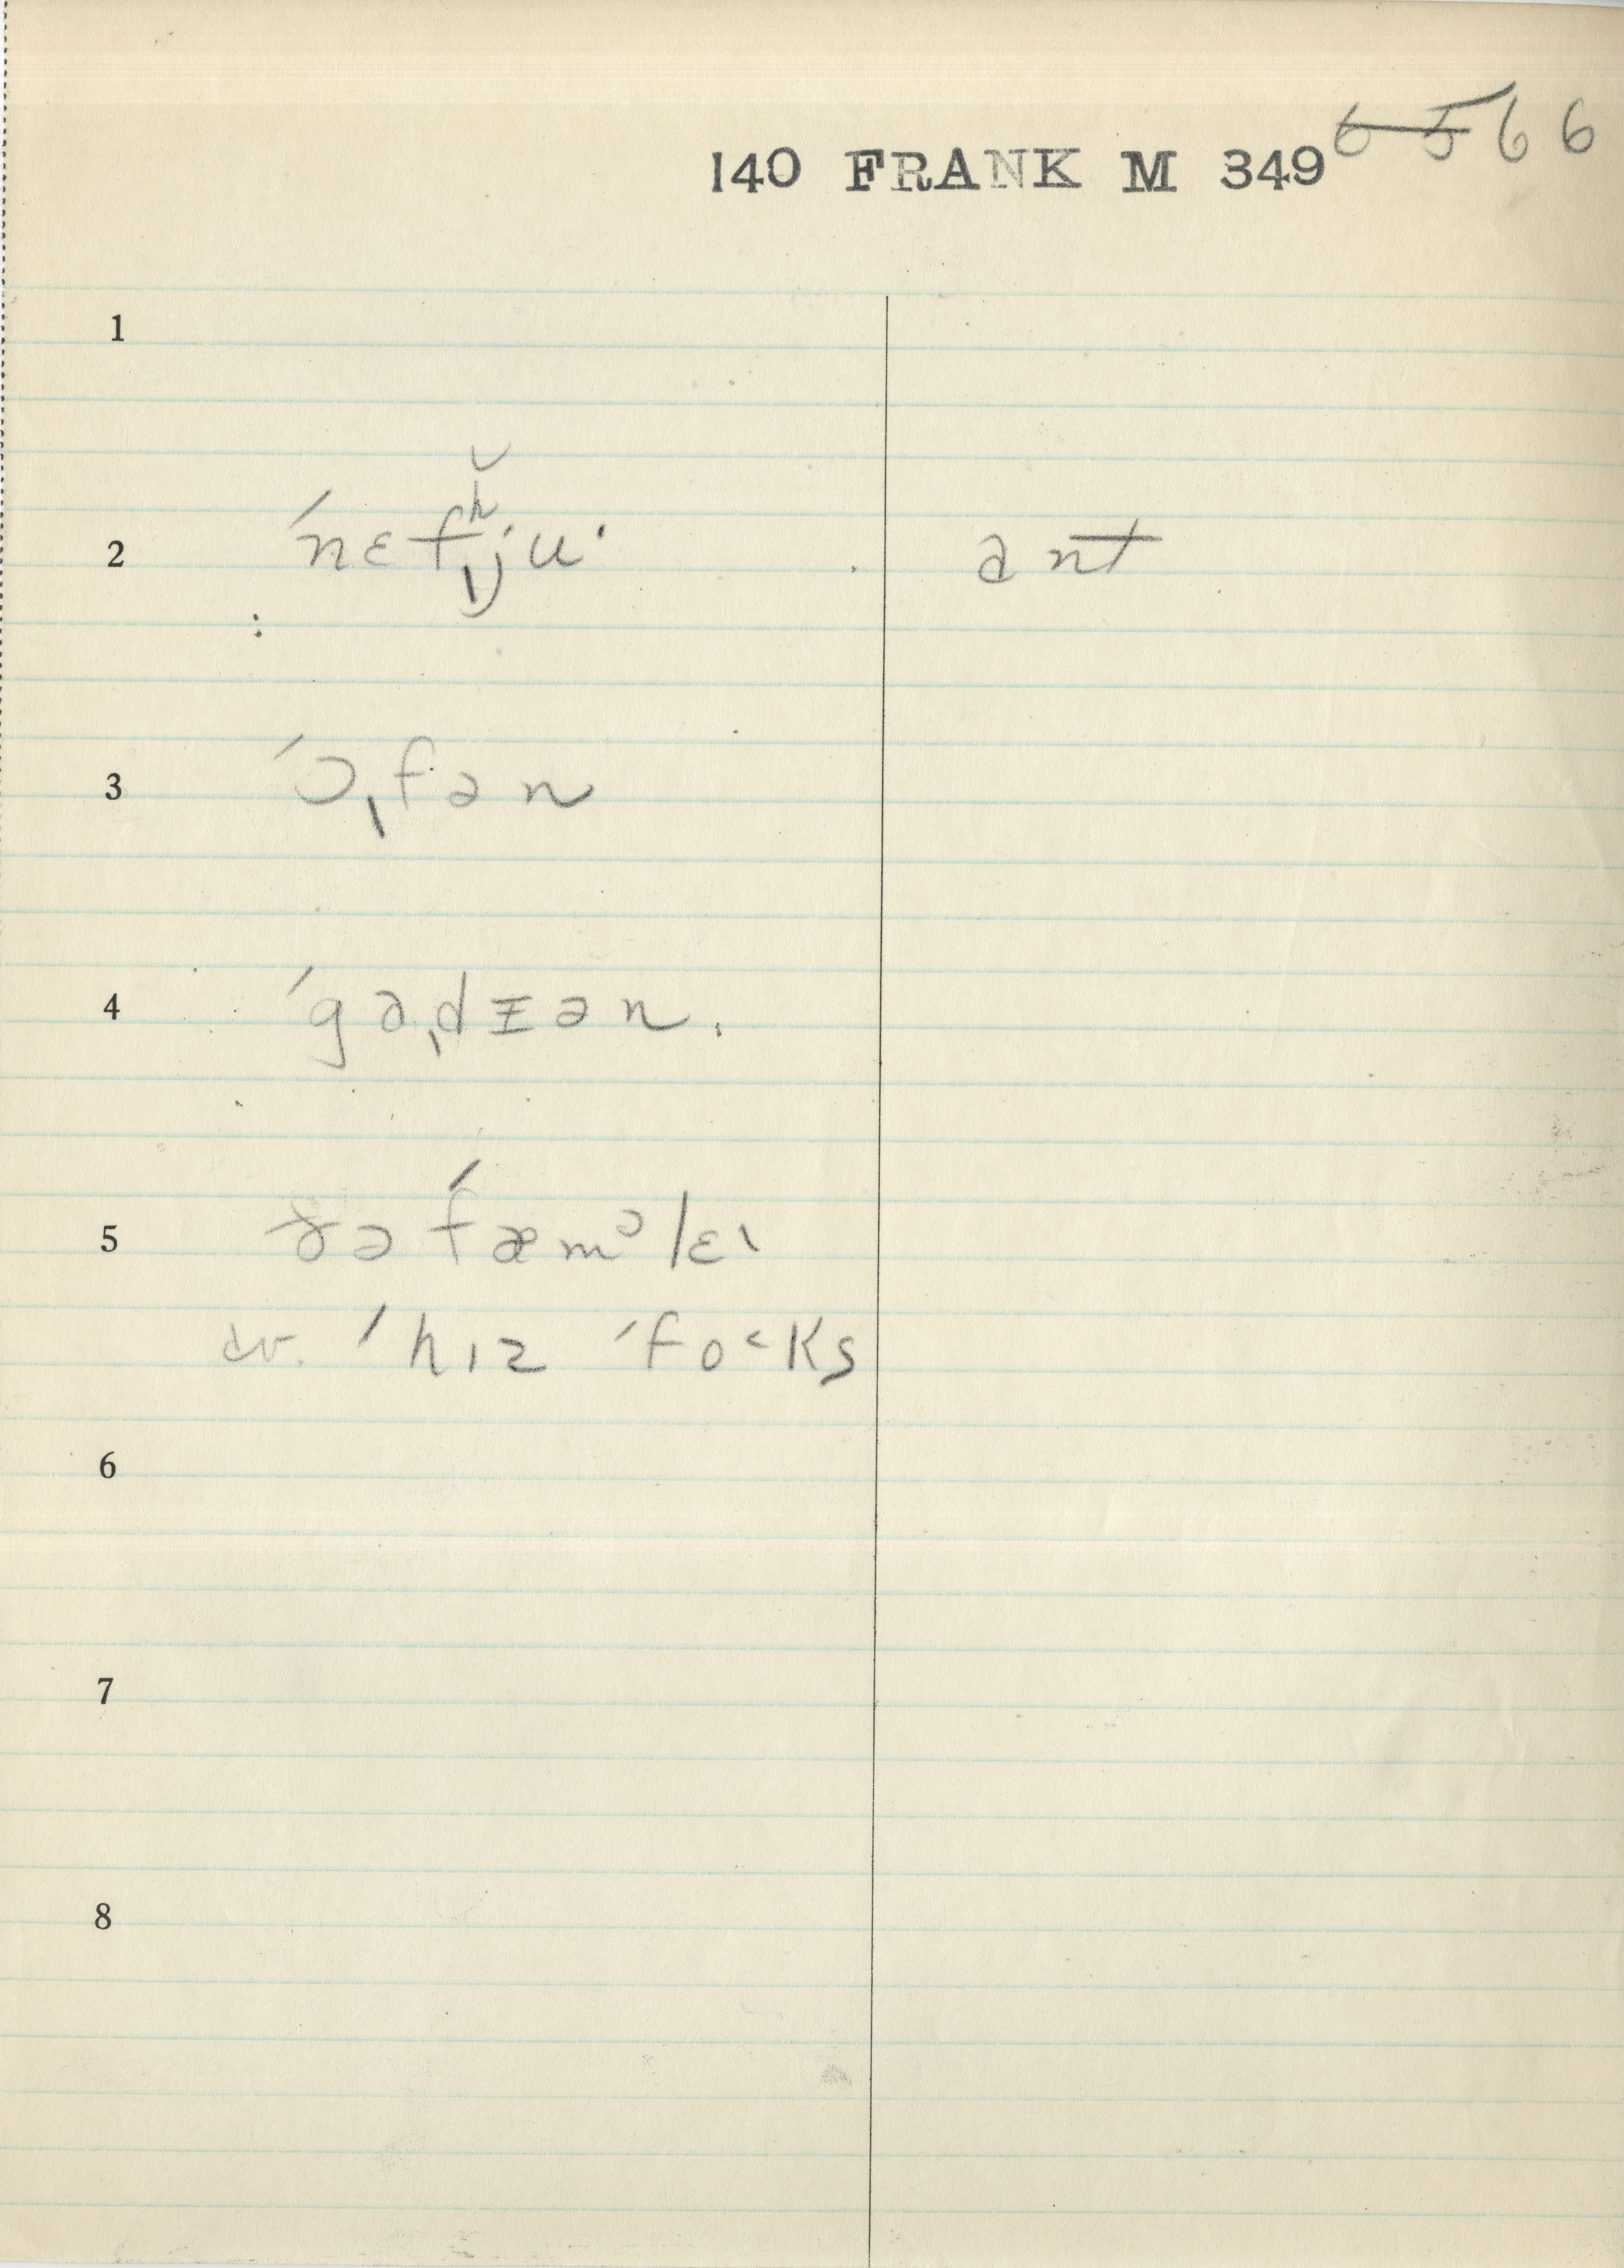 140 FRANK M 349 6 5 66
1
2 ˊnɛfʰ̆ˌju· ant
3 ˊɔˌfən
4 ˊgəˌdɪən.
5 ðə ˊfæmᵊlɛ˔
ˊhɪz ˊfo˂ks
6
7
8